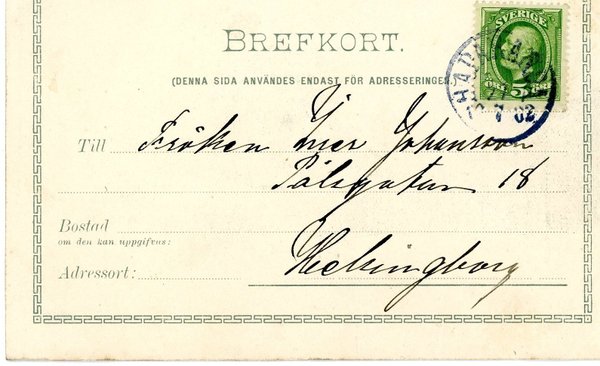 BREFKORT.
SVERIGE
(DENNA SIDA ANVÄNDES ENDAST FÖR ADRESSERINGEN.)
ÖRE 5 ÖRE
7 02
Till Fröken Johansson
Pålsgatan 18
Bostad
om den kan uppgifvas:
Adressort: Helsingborg